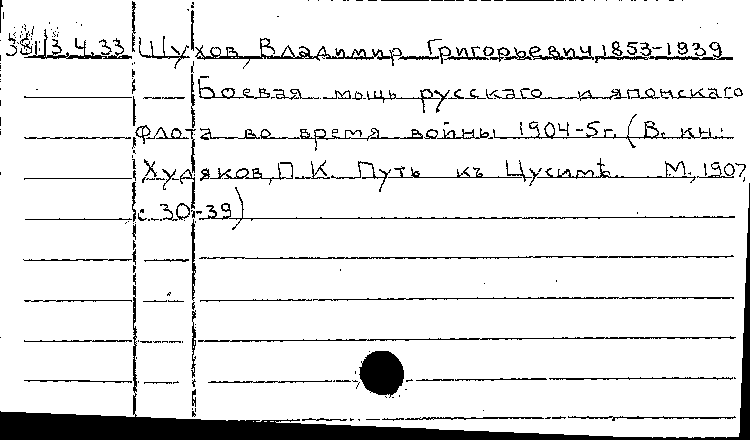 381/3.4.33 Шухов, Владимир Григорьевич, 1853-1939
Боевая мощь русскаго и японскаго
флота во время войны 1904-5г. (В. кн:
Худяков, П.К. Путь къ Цусимѣ. М., 1907,
с 30-39).